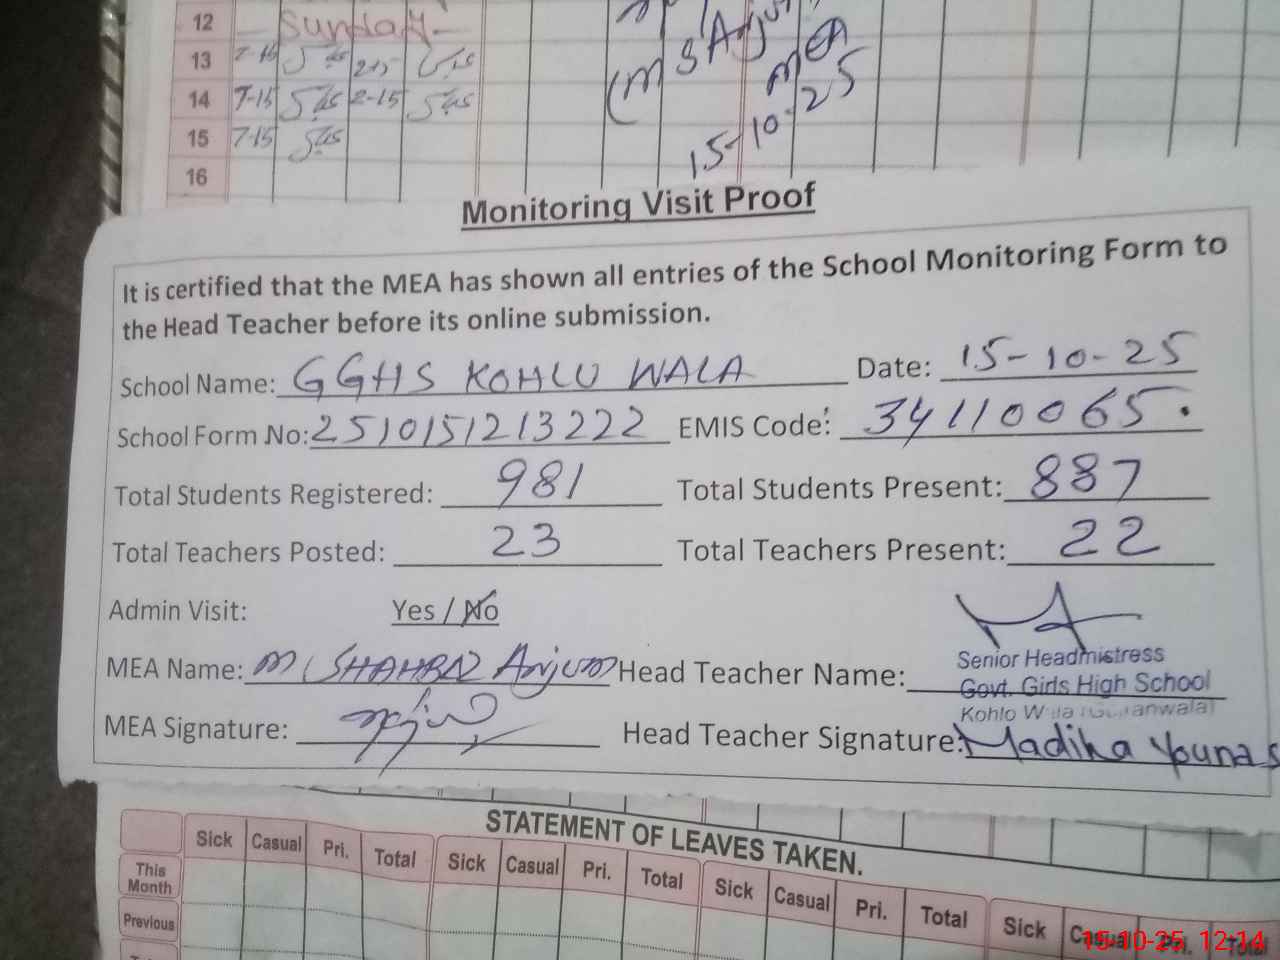 12 Sunday
13 7-15 2-15
14 7-15 2-15
15 7-15
16
(M S Anjum
MEA
15-10-25
Monitoring Visit Proof
It is certified that the MEA has shown all entries of the School Monitoring Form to
the Head Teacher before its online submission.
School Name: GGHS KOHLU WALA Date: 15-10-25
School Form No: 2510151213222 EMIS Code: 34110065.
Total Students Registered: 981 Total Students Present: 887
Total Teachers Posted: 23 Total Teachers Present: 22
Admin Visit: Yes / No
Senior Headmistress
MEA Name: M SHAHBAZ Anjum Head Teacher Name: Govt. Girls High School
Kohlo Wala (Gujranwala)
MEA Signature: Head Teacher Signature: Madiha Younas
STATEMENT OF LEAVES TAKEN.
Sick Casual Pri. Total Sick Casual Pri. Total Sick Casual Pri. Total Sick Casual Pri. Total
This
Month
Previous
15-10-25 12:14